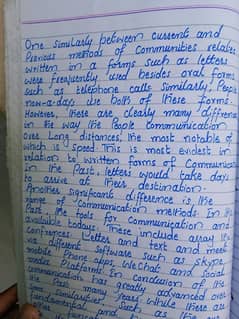 One similarly between current and
Previous methods of Communities relates
written in a forms such as letters
were frequently used besides oral forms
such as telephone calls similarly, People
now-a-days use Both of these forms.
However, there are clearly many differen
in the way the People communication
over long ditances, the most notable of
which is speed This is most evidest in
relation to written forms of Communica
In the Past, letters would take days
to arrive at their destination.
Another significant difference is the
range of Communication methods In the
Past the tools for communication and
available todays. These include array
Confrences. Letter and text and meet
via different software such as Skype
mobile Phone apps, WeChat and Social
media Platforms In conclusion of the
communication has greatly advanced over
the Past many years while there are
some similarities such as the
fundamental